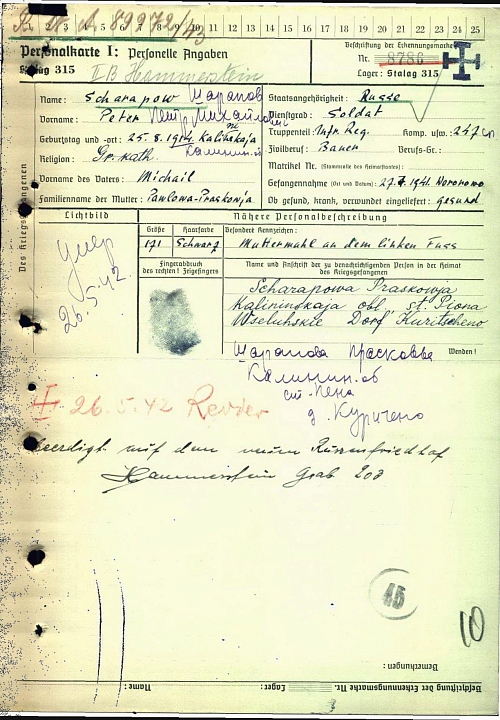 89972/43
1 2 3 4 5 6 7 8 9 10 11 12 13 14 15 16 17 18 19 20 21 22 23 24 25
Personalkarte I: Personelle Angaben
Beschriftung der Erkennungsmarke
Nr. 8786
Stalag 315
II B Hammerstein
Lager: Stalag 315
Des Kriegsgefangenen
Name: Scharapow Шарапов
Staatsangehörigkeit: Russe
Vorname: Peter Петр Михайлович
Dienstgrad: Soldat
Truppenteil: Inf. Reg. Komp. usw.: 247
Geburtstag und -ort: 25.8.1914. Kalininskaja
Zivilberuf: Bauer Berufs-Gr.:
Religion: Gr. kath. Калинин.
Matrikel Nr. (Stammrolle des Heimatstaates):
Vorname des Vaters: Michail
Gefangennahme (Ort und Datum): 27.7.1941. Woronowo
Familienname der Mutter: Pawlowa-Praskowja
Ob gesund, krank, verwundet eingeliefert: gesund
Lichtbild
Nähere Personalbeschreibung
умер
26.5.42.
Größe Haarfarbe Besondere Kennzeichen:
171 Schwarz Muttermahl an dem linken Fuss
Fingerabdruck
des rechten! Zeigefingers
Name und Anschrift der zu benachrichtigenden Person in der Heimat
des Kriegsgefangenen
Scharapowa Praskowja
Kalininskaja obl. st. Piona
Wseluhskie Dorf Kuritscheno
Шарапова Прасковья
Wenden!
Калинин. об
ст. Пена
д. Куричено
26.5.42 Revier
beerdigt auf dem neuen Russenfriedhof
Hammerstein Grab 203
45
10
Bemerkungen:
Beschriftung der Erkennungsmarke Nr. Lager: Name: